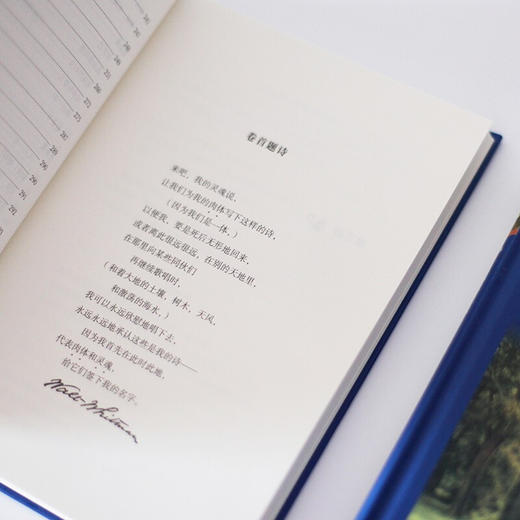 241
245
253
260
271
273
275
282
289
291
290
291
293
卷首题诗
来吧,我的灵魂说,
让我们为我的肉体写下这样的诗,
(因为我们是一体,)
以便我,要是死后无形地回来,
或者离此很远很远,在别的天地里,
在那里向某些同伙们
再继续歌唱时,
(和着大地的土壤,树木,天风,
和激荡的海水,)
我可以永远欣慰地唱下去,
永远永远地承认这些是我的诗——
因为我首先在此时此地,
代表肉体和灵魂,
给它们签下我的名字。
Walt Whitman